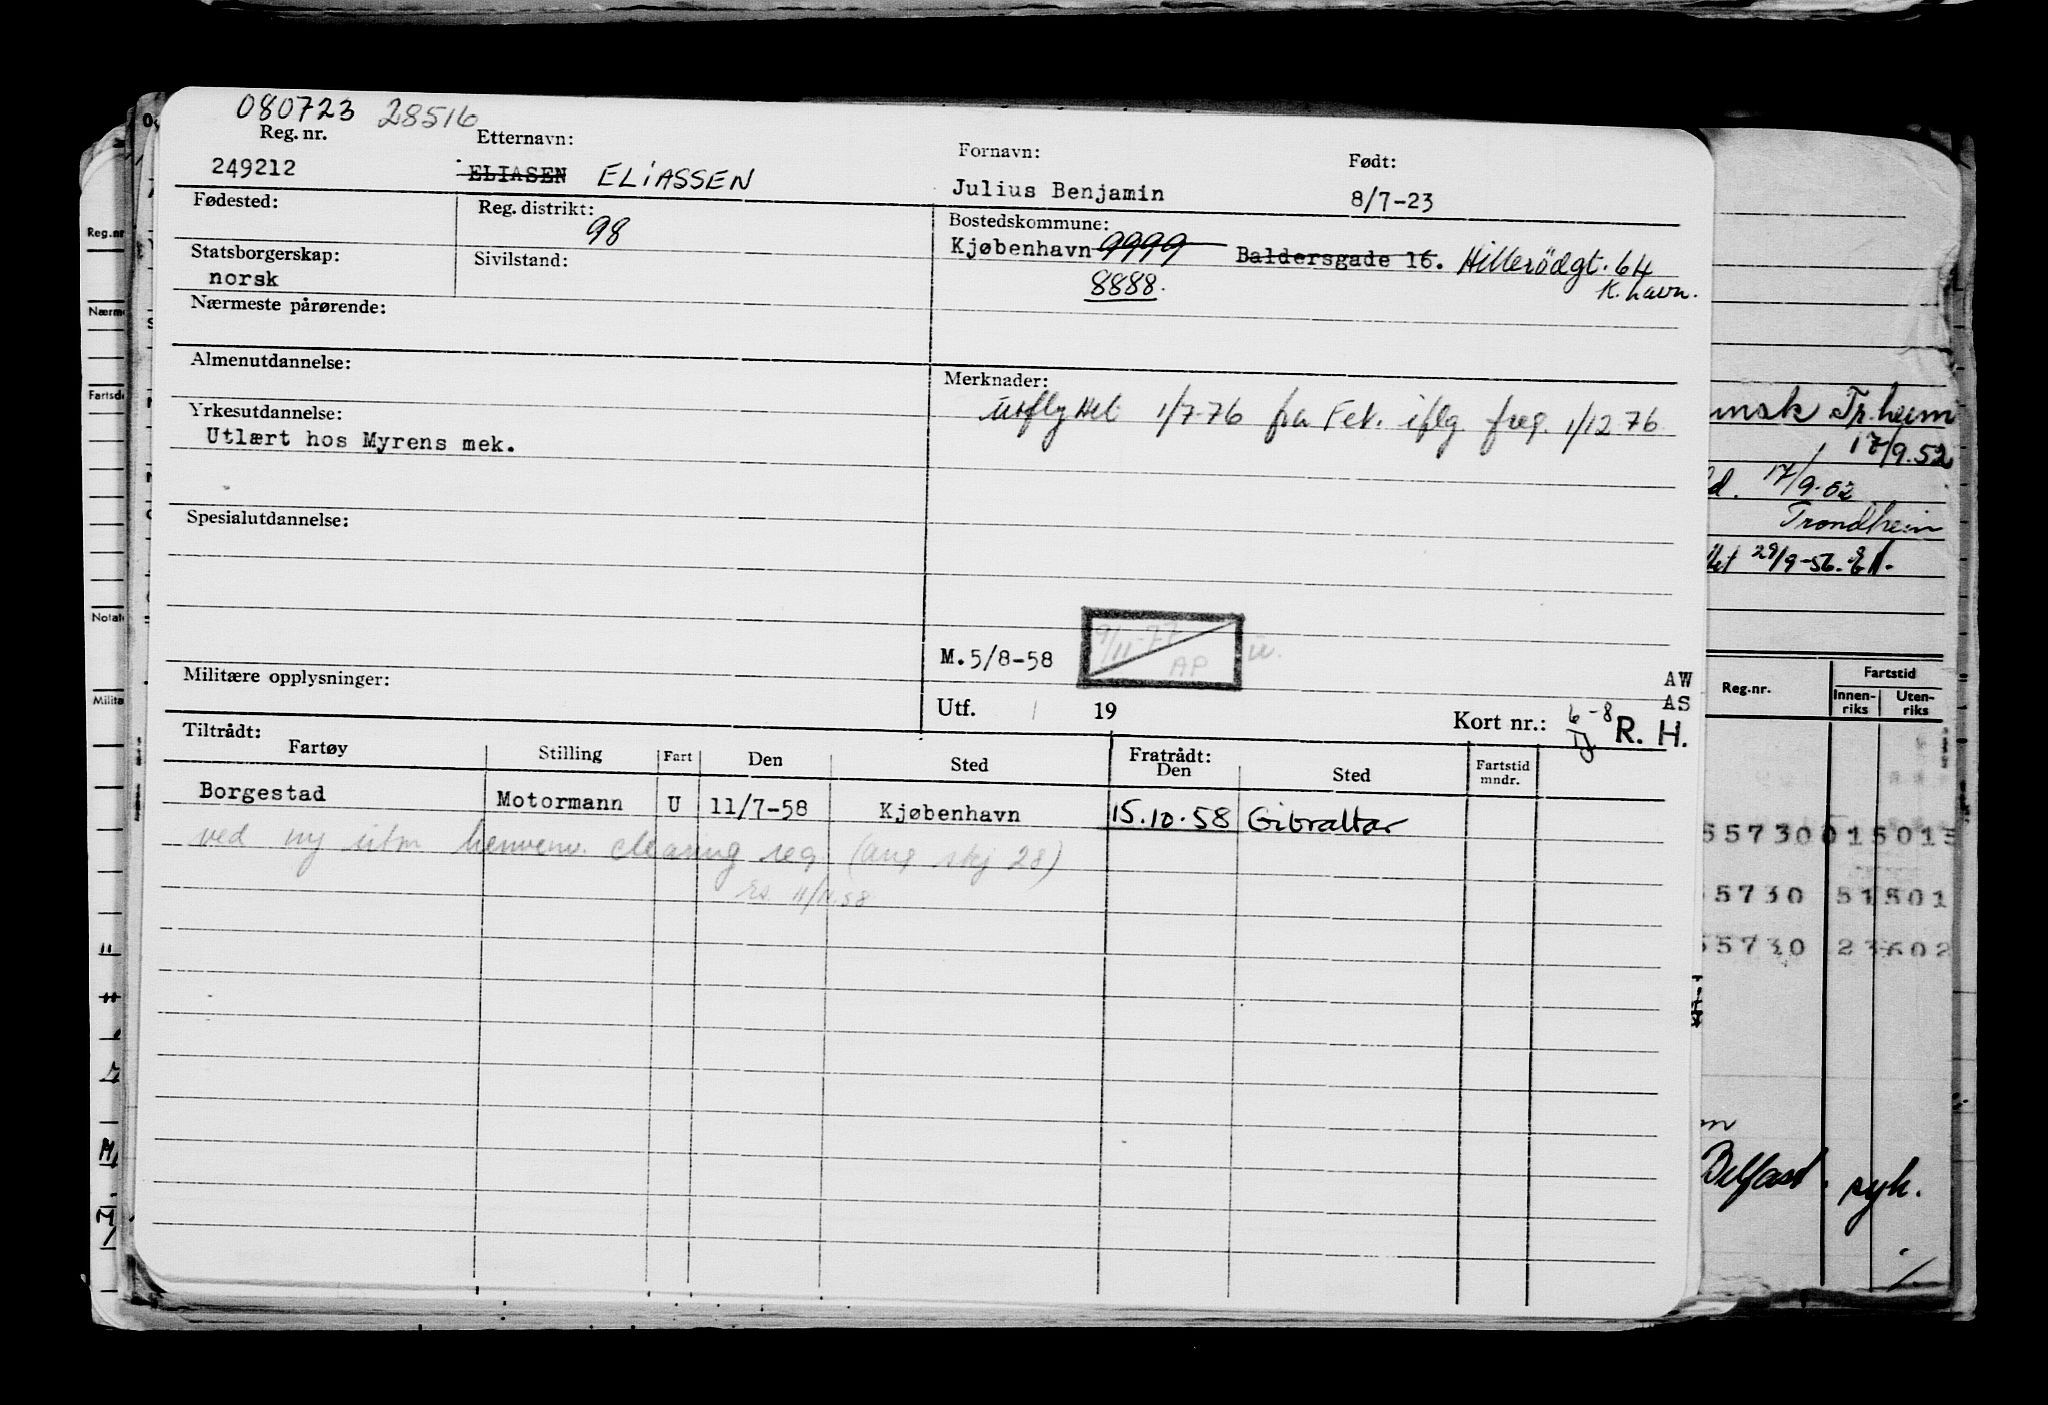 080723 28516
Reg. nr. Etternavn: Fornavn: Født:
249212 ELIASEN ELIASSEN Julius Benjamin 8/7-23
Fødested: Reg. distrikt: 98 Bostedskommune:
Kjøbenhavn 9999 Baldersgade 16. Hillerödgt. 64
8888. K.havn.
Statsborgerskap: Sivilstand:
norsk
Nærmeste pårørende:
Almenutdannelse: Merknader:
utflyttet 1/7-76 fra Fet. iflg freg. 1/12 76
Yrkesutdannelse:
Utlært hos Myrens mek.
Spesialutdannelse:
M. 5/8-58 9/11-77 AP
Militære opplysninger: AW
AS
Utf. 19 Kort nr.: 6-8 R. H.
Tiltrådt: Fratrådt:
Fartøy Stilling Fart Den Sted Den Sted Fartstid
mndr.
Borgestad Motormann U 11/7-58 Kjøbenhavn 15.10.58 Gibraltar
ved ny utm henvenv. clearing reg. (ang skj 28)
11/11 58
Reg.nr
Nærm
Fartsd
Notat
Milita
Tr.heim
17/9.52
17/9.52
Trondheim
29/9-56.
Reg.nr. Fartstid
Innen-
riks
Uten-
riks
55730 015015
5730 51501
55730 23602
Belfast. syk.